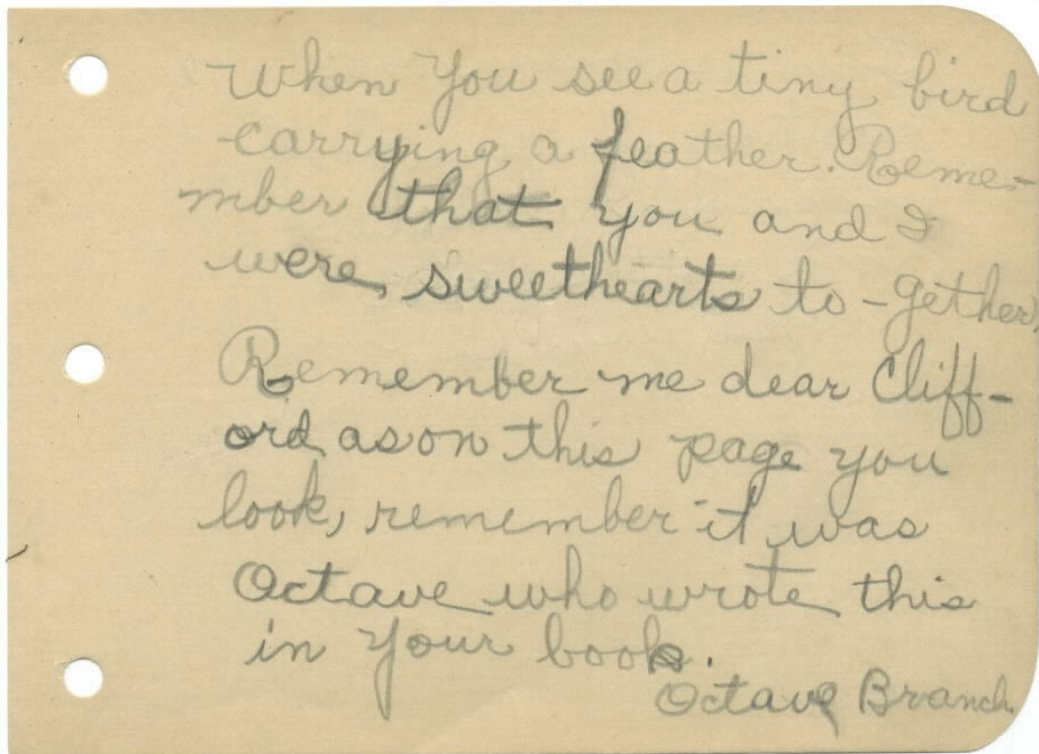 When you see a tiny bird
carrying a feather. Reme-
mber that you and I
were, sweethearts to-gether,
Remember me dear Cliff-
ord as on this page you
look, remember it was
Octave who wrote this
in your book.
Octave Branch.